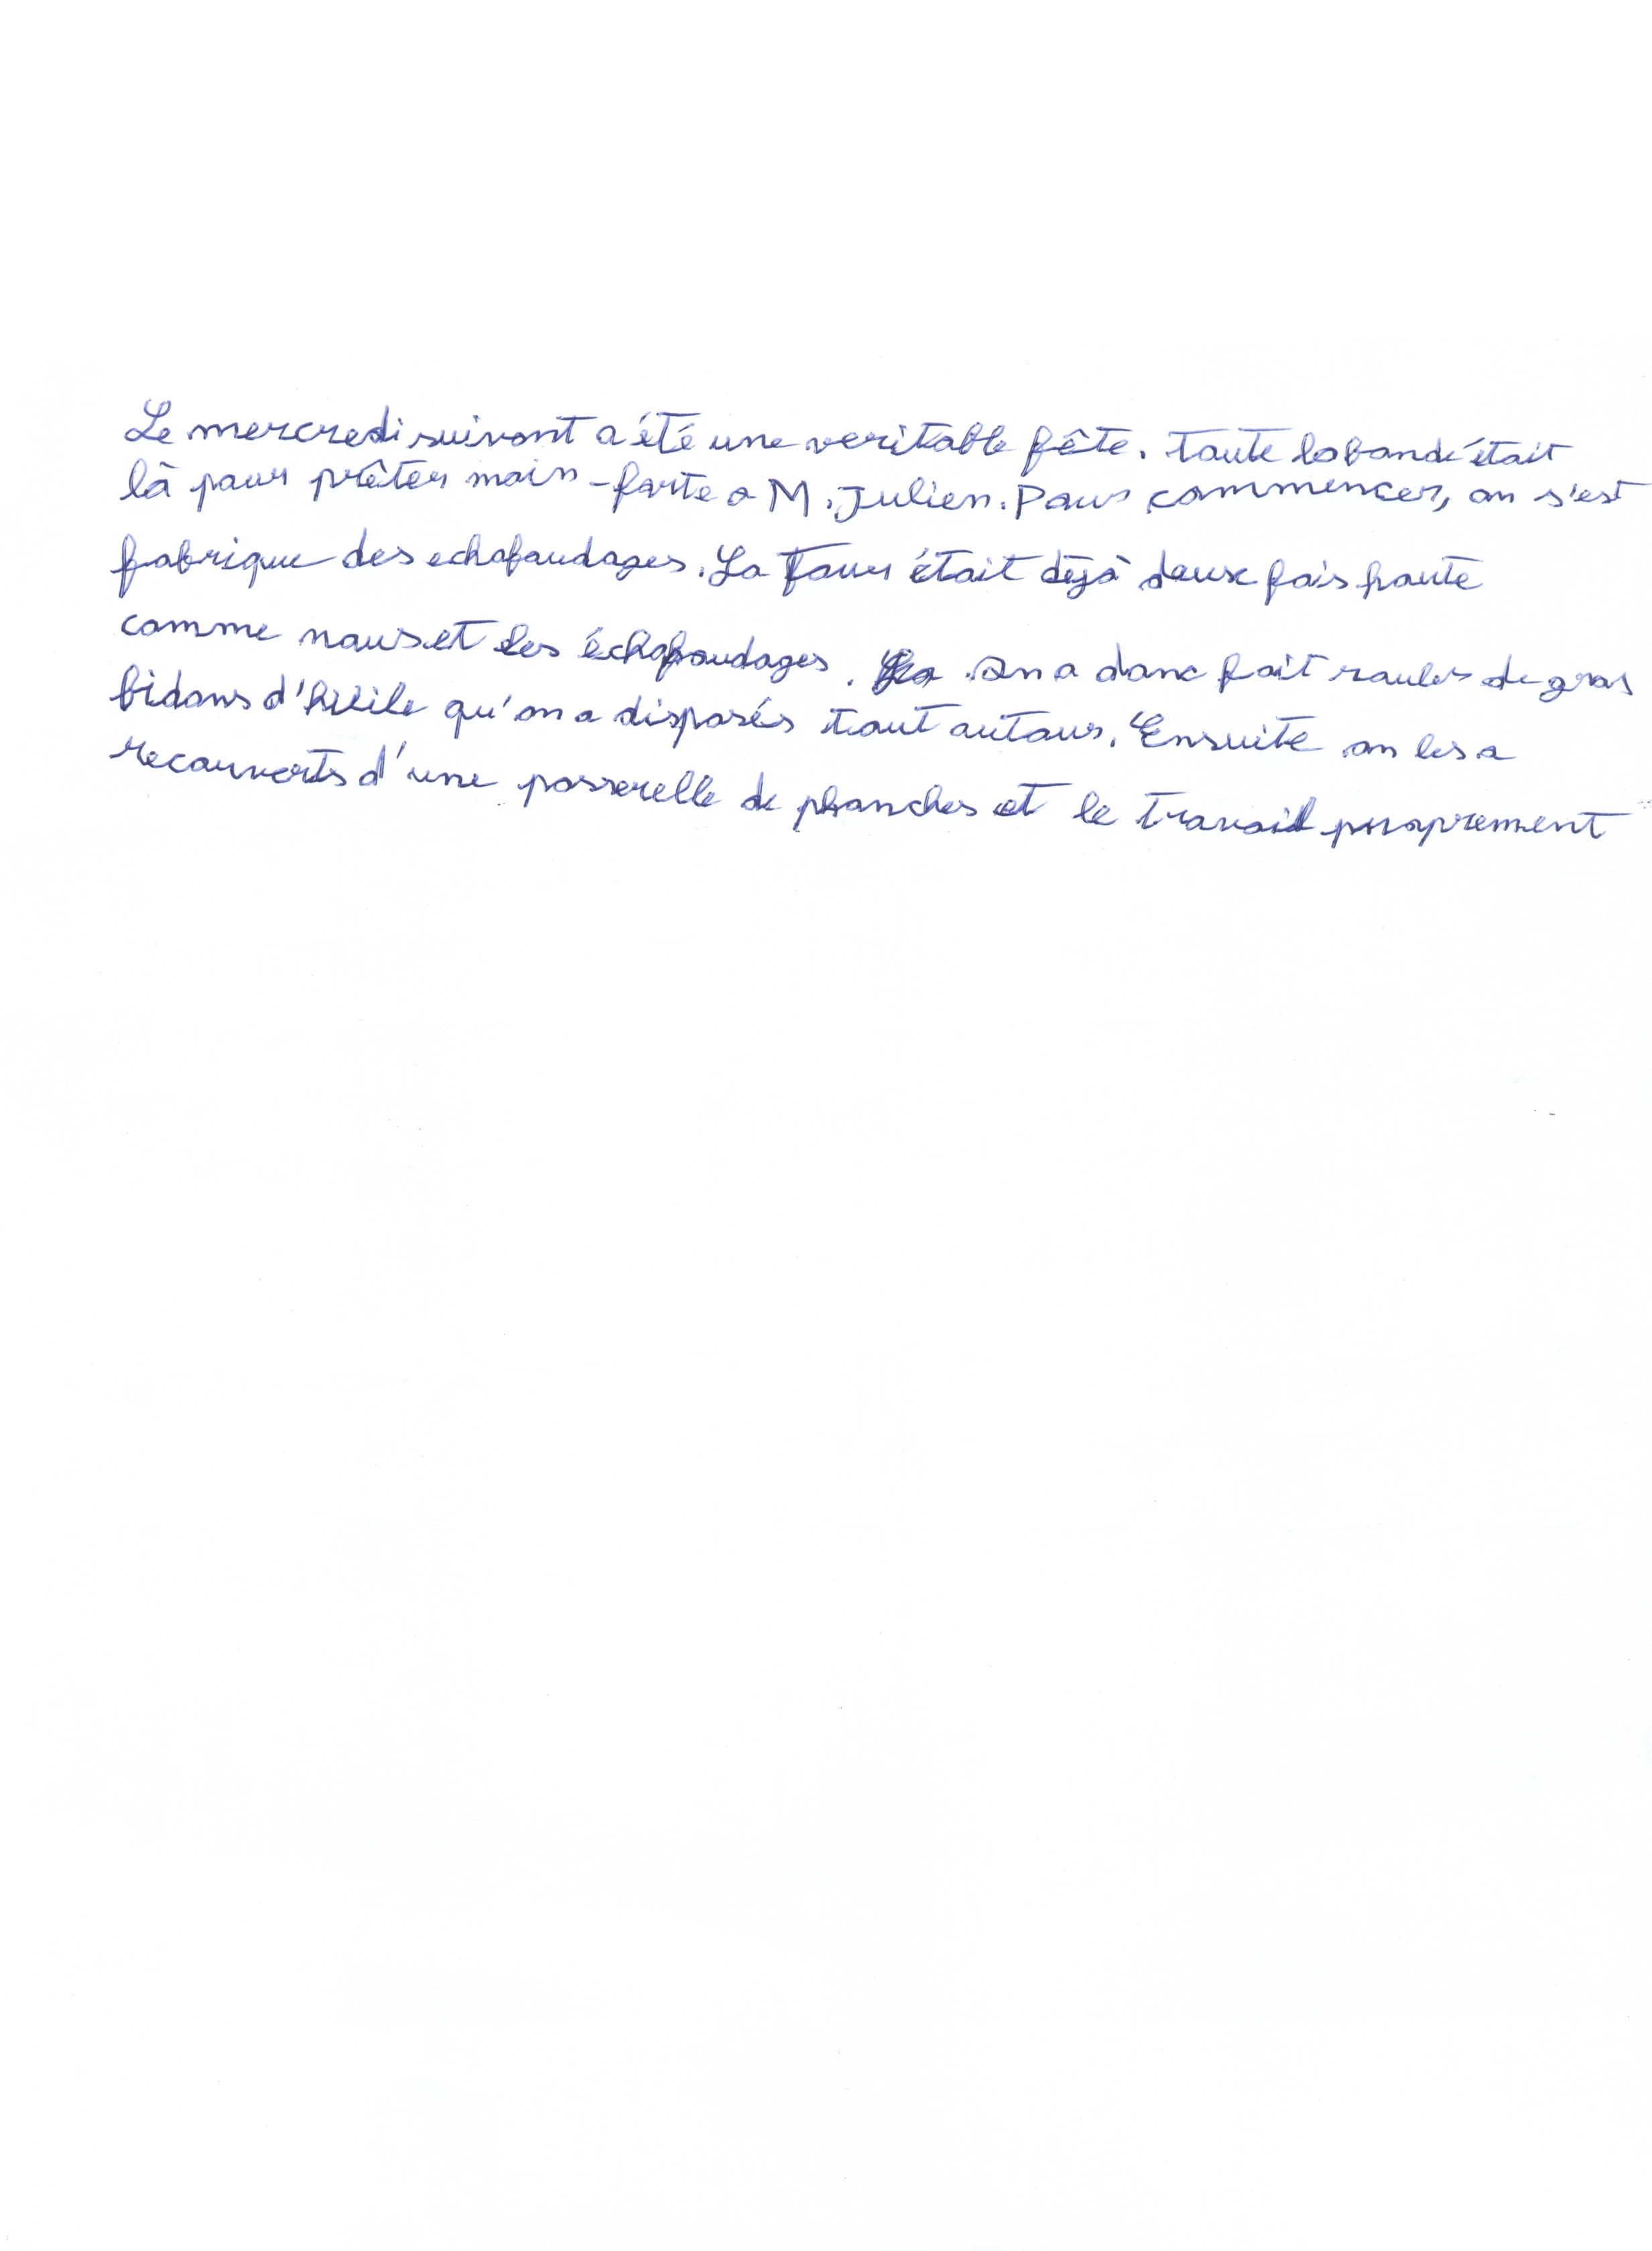 Le mercredi suivant a été une veritable fête. toute la bande était
là pour prêter main-forte a M. Julien. Pour commencer, on s'est
fabrique des echafaudages. La Tour était déjà deux fois haute
comme nous et les échafaudages. On a donc fait rouler de gros
bidons d'huile qu'on a disposés tout autour. Ensuite on les a
recouverts d'une passerelle de planches et le travail proprement